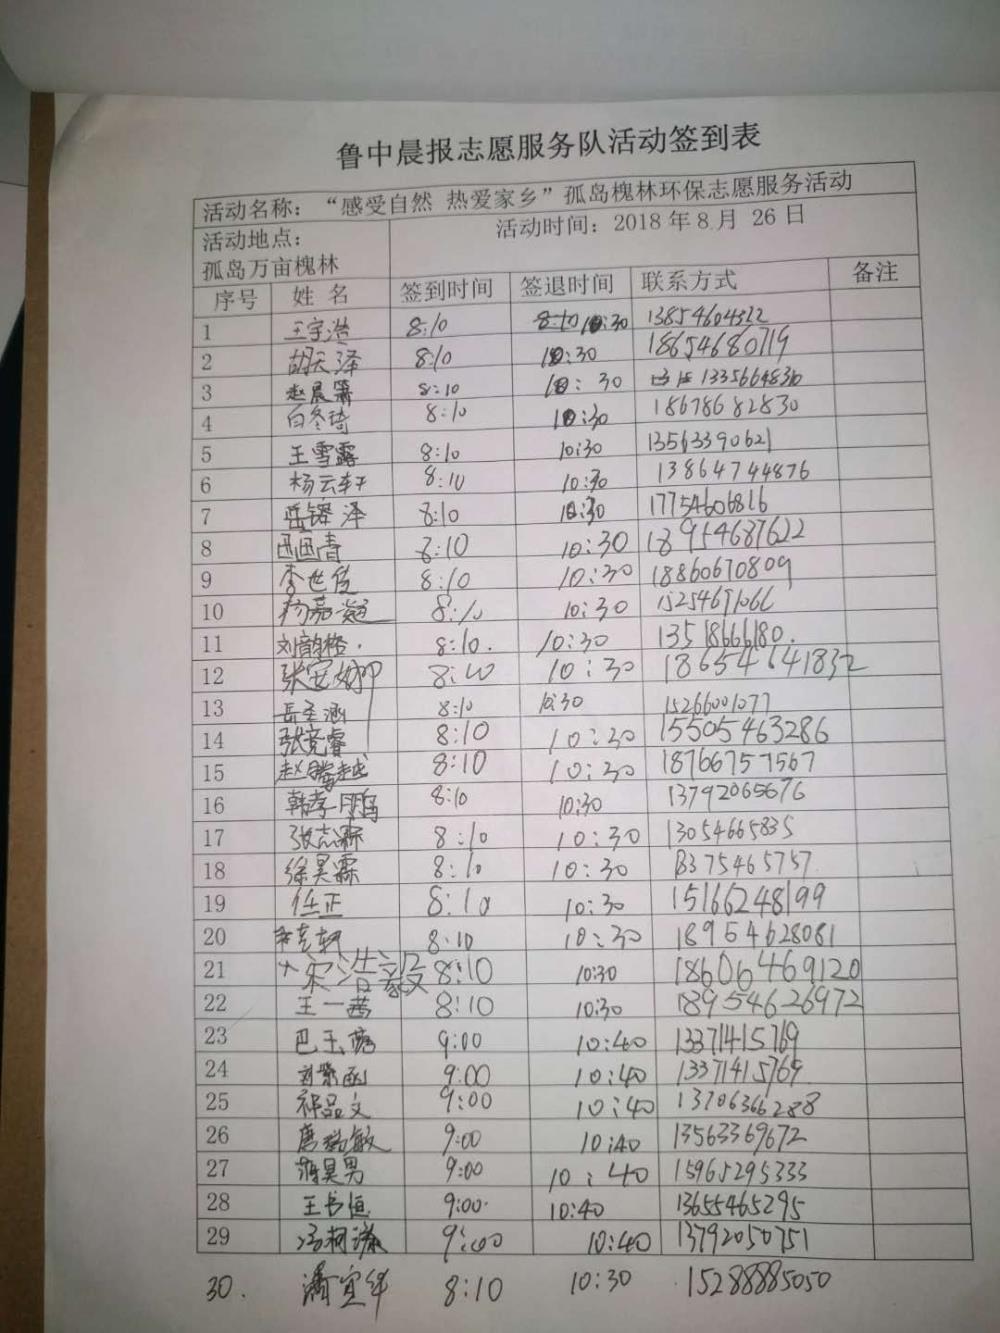 鲁中晨报志愿服务队活动签到表
活动名称：“感受自然 热爱家乡”孤岛槐林环保志愿服务活动
活动地点： 活动时间：2018 年 8 月 26 日
孤岛万亩槐林
序号 姓 名 签到时间 签退时间 联系方式 备注
1 王宇浩 8:10 10:30 13854604322
2 胡天泽 8:10 10:30 18654680719
3 赵晨 8:10 10:30
4 白冬琦 8:10 10:30 18678682830
5 王雪露 8:10 10:30 13563390621
6 杨云轩 8:10 10:30 13864744876
7 岳 泽 8:10 10:30 17754606816
8 8:10 10:30 18954687622
9 李世 8:10 10:30 18860670809
10 杨嘉 8:10 10:30 15254691066
11 刘韵格 8:10. 10:30 13518666180.
12 张安娜 8:10 10:30 18654641832
13 岳圣涵 8:10 10:30 15266001077
14 张竞睿 8:10 10:30 15505463286
15 赵腾越 8:10 10:30 18766757567
16 韩孝鹏 8:10 10:30 13792065676
17 张志霖 8:10 10:30 13054665835
18 徐昊霖 8:10 10:30 13375465757
19 任正 8:10 10:30 15166248199
20 8:10 10:30 18954628081
21 宋浩毅 8:10 10:30 18606469120
22 王一茜 8:10 10:30 18954626972
23 巴玉 9:00 10:40 13371415769
24 刘紫函 9:00 10:40 13371415769
25 祁品文 9:00 10:40 13706366288
26 唐瑞敏 9:00 10:40 13563369672
27 昊男 9:00 10:40 15965295333
28 王书恒 9:00 10:40 13655465295
29 冯柯 9:00 10:40 13792050751
30. 潘宜 8:10 10:30 15288885050